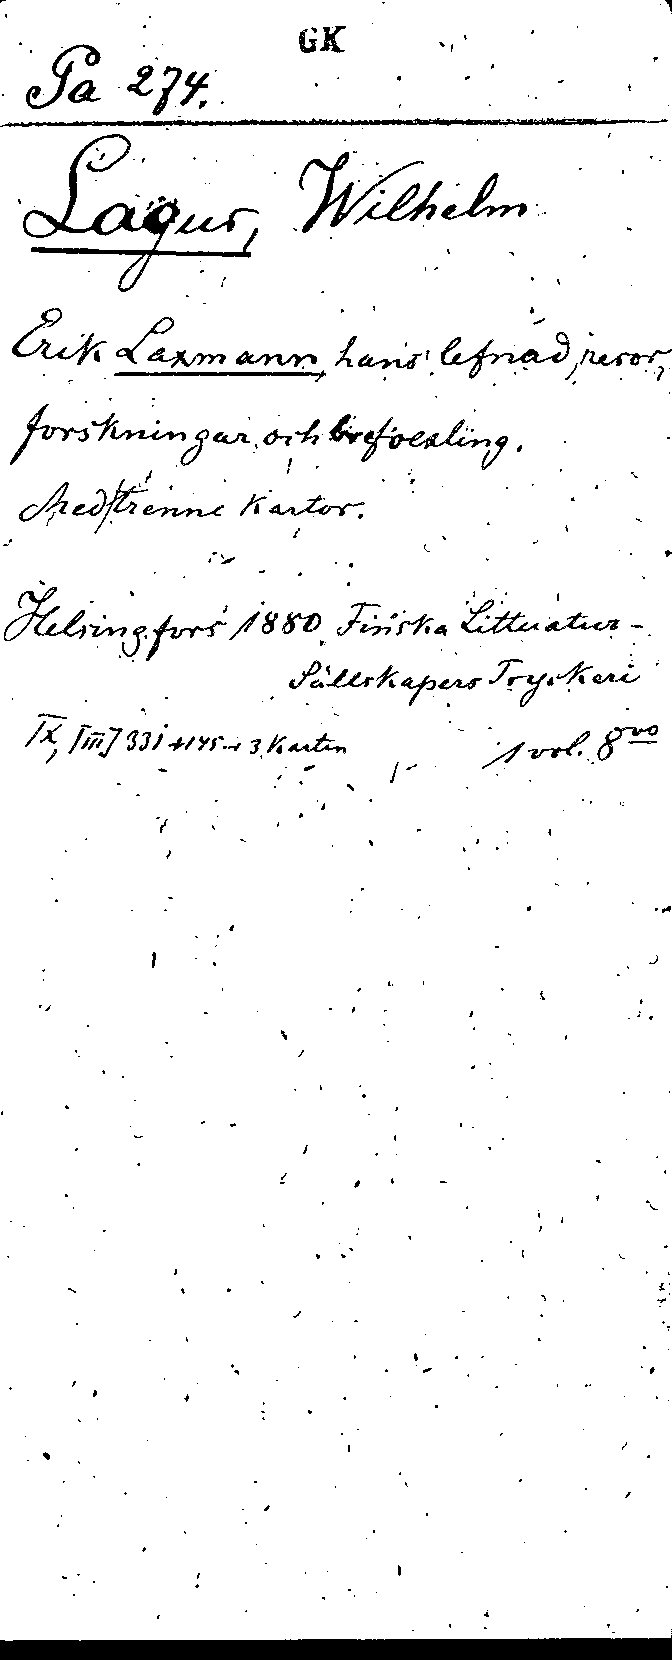 GK
Pa 274.
Lagus, Wilhelm
Erik Laxmann, hans lefnad, resor,
forskningar och brefvexling.
Med trenne Kartor.
Helsingfors 1880 Finska Litteratur-
Sällskapers Tryckeri
IX, [III] 331 + 145 + 3 Karten
1 vol. 8vo